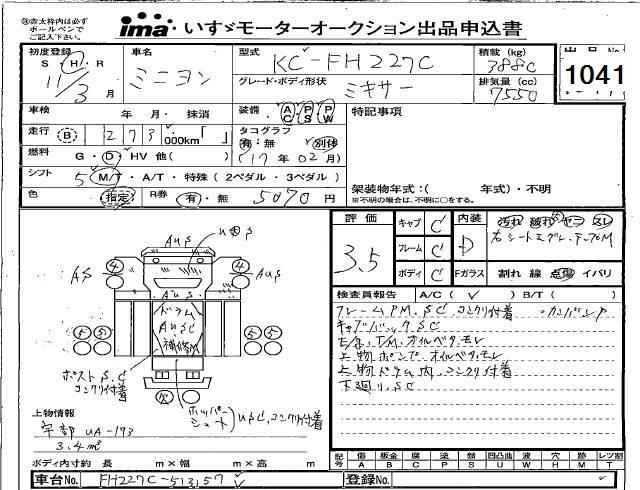 ※赤太枠内は必ず
ボールペンで
ご記入下さい。
ima いすゞモーターオークション出品申込書
初度登録
S・H・R
11/3月
車名
ミニヨン
型式
KC-FH227C
積載 (kg)
グレード・ボディ形状
ミキサー
排気量 (cc)
7550
出品No
1041
車検 年 月・抹消
装備 AC PS PW
特記事項
走行 B 273,000km「 」
タコグラフ
有・無 別体
('17年02月)
燃料 G・D・HV 他( )
シフト 5 M/T・A/T・特殊(2ペダル・3ペダル)
色 指定 R券 有・無 5070円
架装物年式:( 年式)・不明
※不明の場合は、不明に○をする。
評価
3.5
キャブ C
フレーム C
ボディ C
内装 D
汚れ 破れ ヤニ スレ
Fガラス 割れ 線 点傷 イバリ
検査員報告 A/C( ) B/T( )
フレームPM.SC.コンクリ付着
キャブバックSC
T/M.オイルベタモレ
上物ポンプ オイルベタモレ
上物ドラム内コンクリ付着
下廻り.SC
AS
AuS
AuS
4
4
AuS
5 5
ドラム
AuSC
補修M
5 5
ポストS.C
コンクリ付着
欠
ホッパー
シュート
USC.コンクリ付着
上物情報
宇部 UA-193
3.4m³
ボディ内寸約 長 m×幅 m×高 m
記号 傷 板金 腐 塗 錆 凹凸曲 波 穴 跡 レツ割
A B C P S U W H M T
車台No. FH227C-513157
登録No.